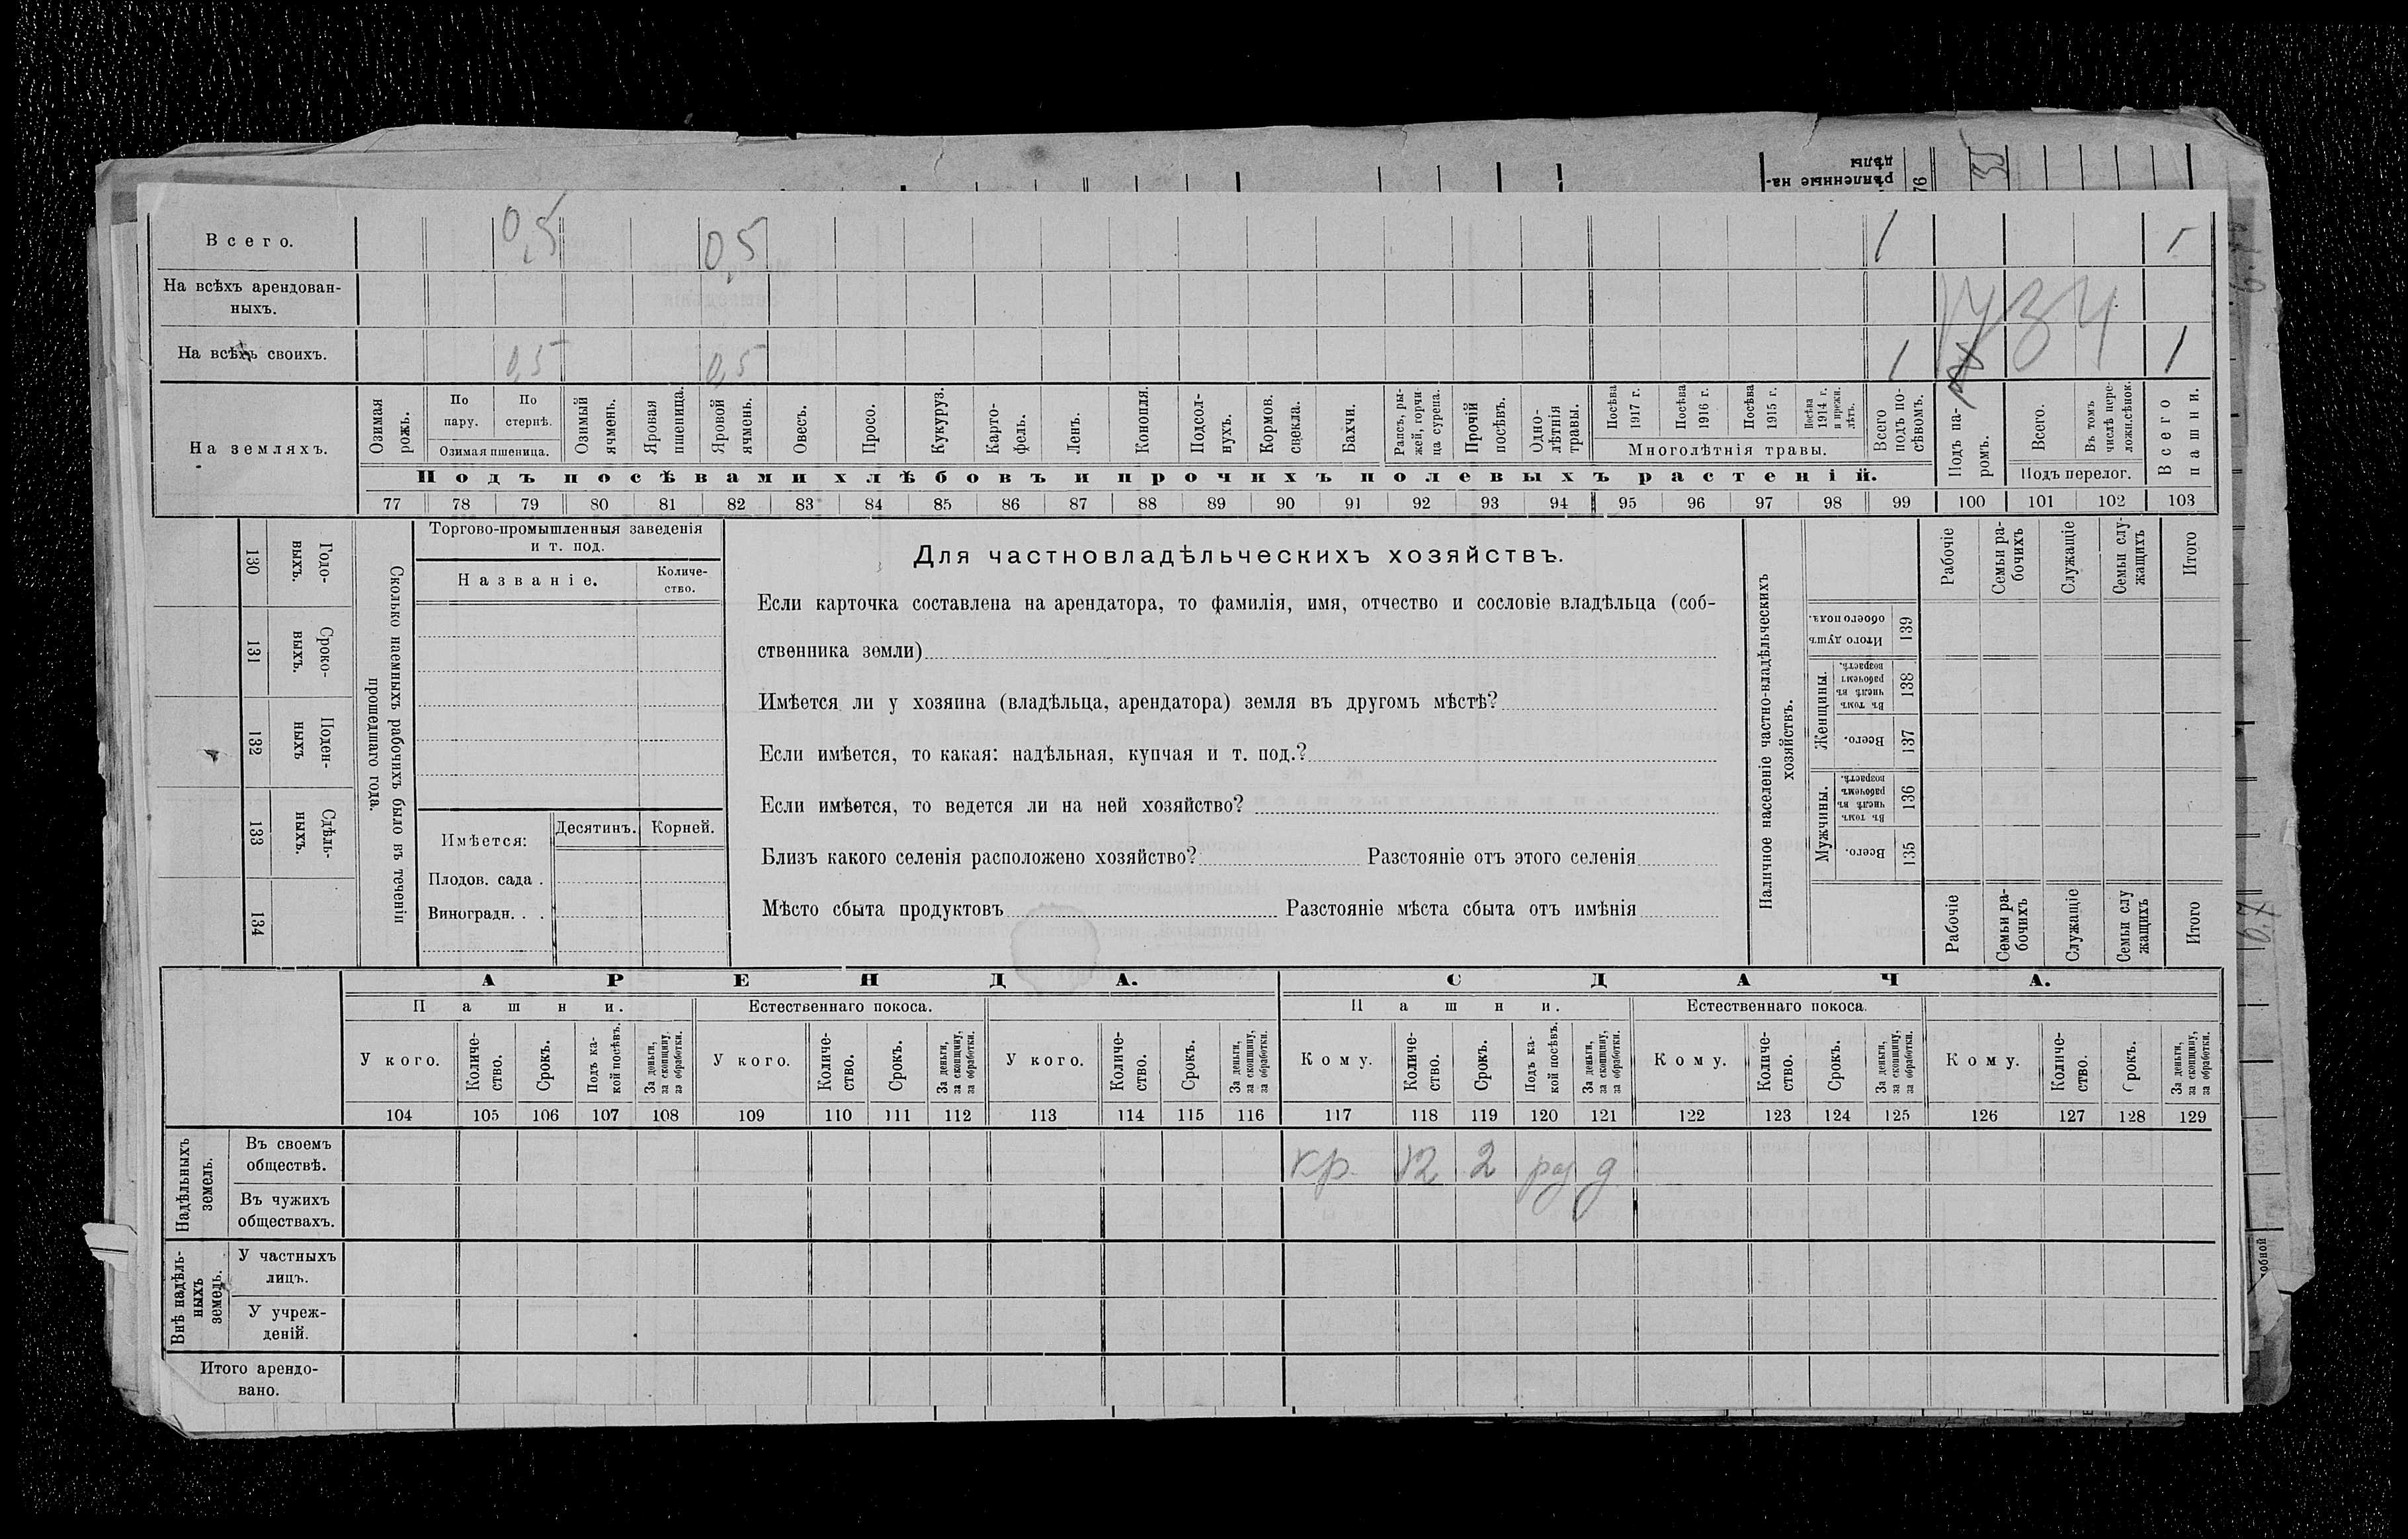 рѣпленные на-
дѣлы
76
35
Всего. 0,5 0,5 1 1
На всѣхъ арендован-
ныхъ.
1734
На всѣхъ своихъ. 0,5 0,5 1 1
На земляхъ.
Озимая рожь.
По пару.
По стернѣ.
Озимая пшеница.
Озимый ячмень.
Яровая пшеница.
Яровой ячмень.
Овесъ.
Просо.
Кукуруз.
Карто-
фель.
Ленъ.
Конопля.
Подсол-
нухъ.
Кормов. свекла.
Бахчи.
Рапсъ, ры-
жей, горчи-
ца сурепа.
Прочій посѣвъ.
Одно-
лѣтнія травы.
Посѣва 1917 г.
Посѣва 1916 г.
Посѣва 1915 г.
Посѣва 1914 г. и прежн. лѣтъ.
Многолѣтнія травы.
Всего подъ по-
сѣвомъ.
Подъ па-
ромъ.
Всего.
Въ томъ числѣ пере-
ложн.сѣнок.
Подъ перелог.
Всего пашни.
Подъ посѣвами хлѣбовъ и прочихъ полевыхъ растеній.
77 78 79 80 81 82 83 84 85 86 87 88 89 90 91 92 93 94 95 96 97 98 99 100 101 102 103
Сколько наемныхъ рабочихъ было въ теченіи
прошедшаго года.
Годо-
выхъ.
130
Сроко-
выхъ.
131
Поден-
ныхъ
132
Сдѣль-
ныхъ.
133
134
Торгово-промышленныя заведенія
и т. под.
Названіе.
Количе-
ство.
Имѣется: Десятинъ. Корней.
Плодов. сада .
Виноградн. . .
Для частновладѣльческихъ хозяйствъ.
Если карточка составлена на арендатора, то фамилія, имя, отчество и сословіе владѣльца (соб-
ственника земли)
Имѣется ли у хозяина (владѣльца, арендатора) земля въ другомъ мѣстѣ?
Если имѣется, то какая: надѣльная, купчая и т. под.?
Если имѣется, то ведется ли на ней хозяйство?
Близъ какого селенія расположено хозяйство? Разстояніе отъ этого селенія
Мѣсто сбыта продуктовъ Разстояніе мѣста сбыта отъ имѣнія
Наличное населеніе частно-владѣльческихъ
хозяйствъ.
Рабочіе
Семьи ра-
бочихъ
Служащіе
Семьи слу-
жащихъ
Итого
Итого душъ обоего пола.
139
Женщины.
Въ томъ числѣ въ рабочемъ возрастѣ.
138
Всего.
137
Мужчины.
Въ томъ числѣ въ рабочемъ возрастѣ.
136
Всего.
135
Рабочіе
Семьи ра-
бочихъ
Служащіе
Семьи слу
жащихъ
Итого
АРЕНДА. СДАЧА.
Пашни. Естественнаго покоса. Пашни. Естественнаго покоса.
У кого.
Количе-
ство.
Срокъ.
Подъ ка-
кой посѣвъ.
За деньги, за скопщину, за обработки.
У кого.
Количе-
ство.
Срокъ.
За деньги, за скопщину, за обработки.
У кого.
Количе-
ство.
Срокъ.
За деньги, за скопщину, за обработки.
Кому.
Количе-
ство.
Срокъ.
Подъ ка-
кой посѣвъ.
За деньги, за скопщину, за обработки.
Кому.
Количе-
ство.
Срокъ.
За деньги, за скопщину, за обработки.
Кому.
Количе-
ство.
Срокъ.
За деньги, за скопщину, за обработки.
104 105 106 107 108 109 110 111 112 113 114 115 116 117 118 119 120 121 122 123 124 125 126 127 128 129
Надѣльныхъ
земель.
Въ своемъ
обществѣ.
кр. 12 2 раз д
Въ чужихъ
обществахъ.
Внѣ надѣль-
ныхъ
земель.
У частныхъ
лицъ.
У учреж-
деній.
Итого арендо-
вано.